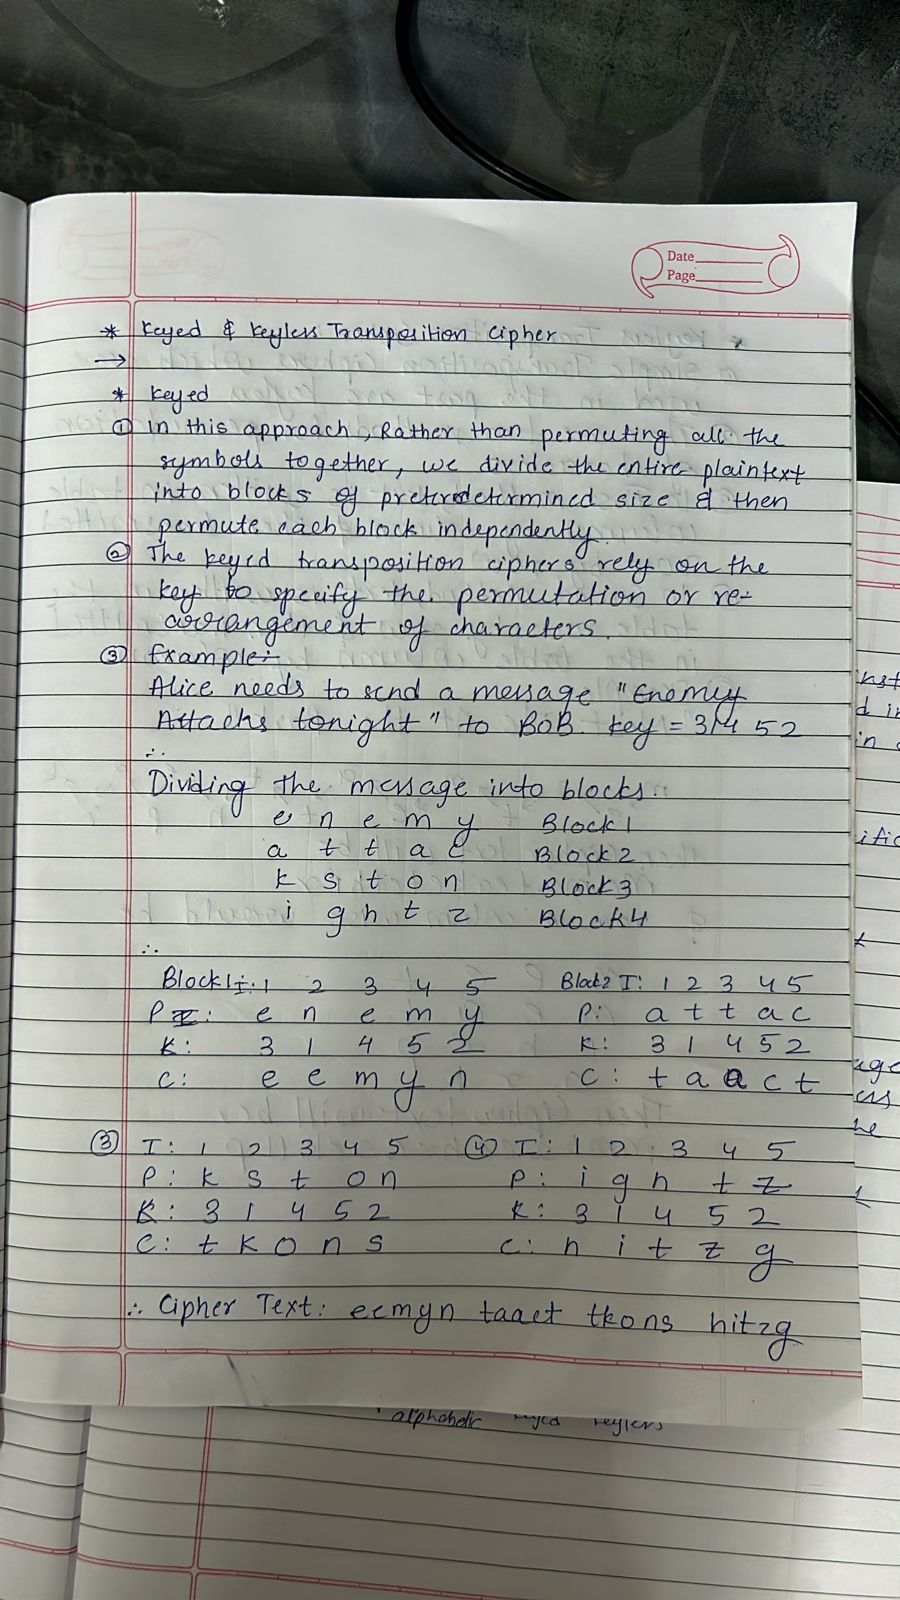 Date
Page
* Keyed & Keyless Transposition Cipher
→
* Keyed
① In this approach, Rather than permuting all the
symbols together, we divide the entire plaintext
into blocks of predetermined size & then
permute each block independently.
② The keyed transposition ciphers rely on the
key to specify the permutation or re-
arrangement of characters.
③ Example:-
Alice needs to send a message "Enemy
Attacks tonight" to BOB. key = 31452
∴
Dividing the message into blocks:
e n e m y Block1
a t t a c Block2
k s t o n Block3
i g h t z Block4
∴
Block1 I: 1 2 3 4 5 Block2 I: 1 2 3 4 5
P: e n e m y P: a t t a c
K: 3 1 4 5 2 K: 3 1 4 5 2
C: e e m y n C: t a a c t
③ I: 1 2 3 4 5 ④ I: 1 2 3 4 5
P: k s t o n P: i g h t z
K: 3 1 4 5 2 K: 3 1 4 5 2
C: t k o n s C: h i t z g
∴ Cipher Text: eemyn taact tkons hitzg
alphabetic keyed keyless